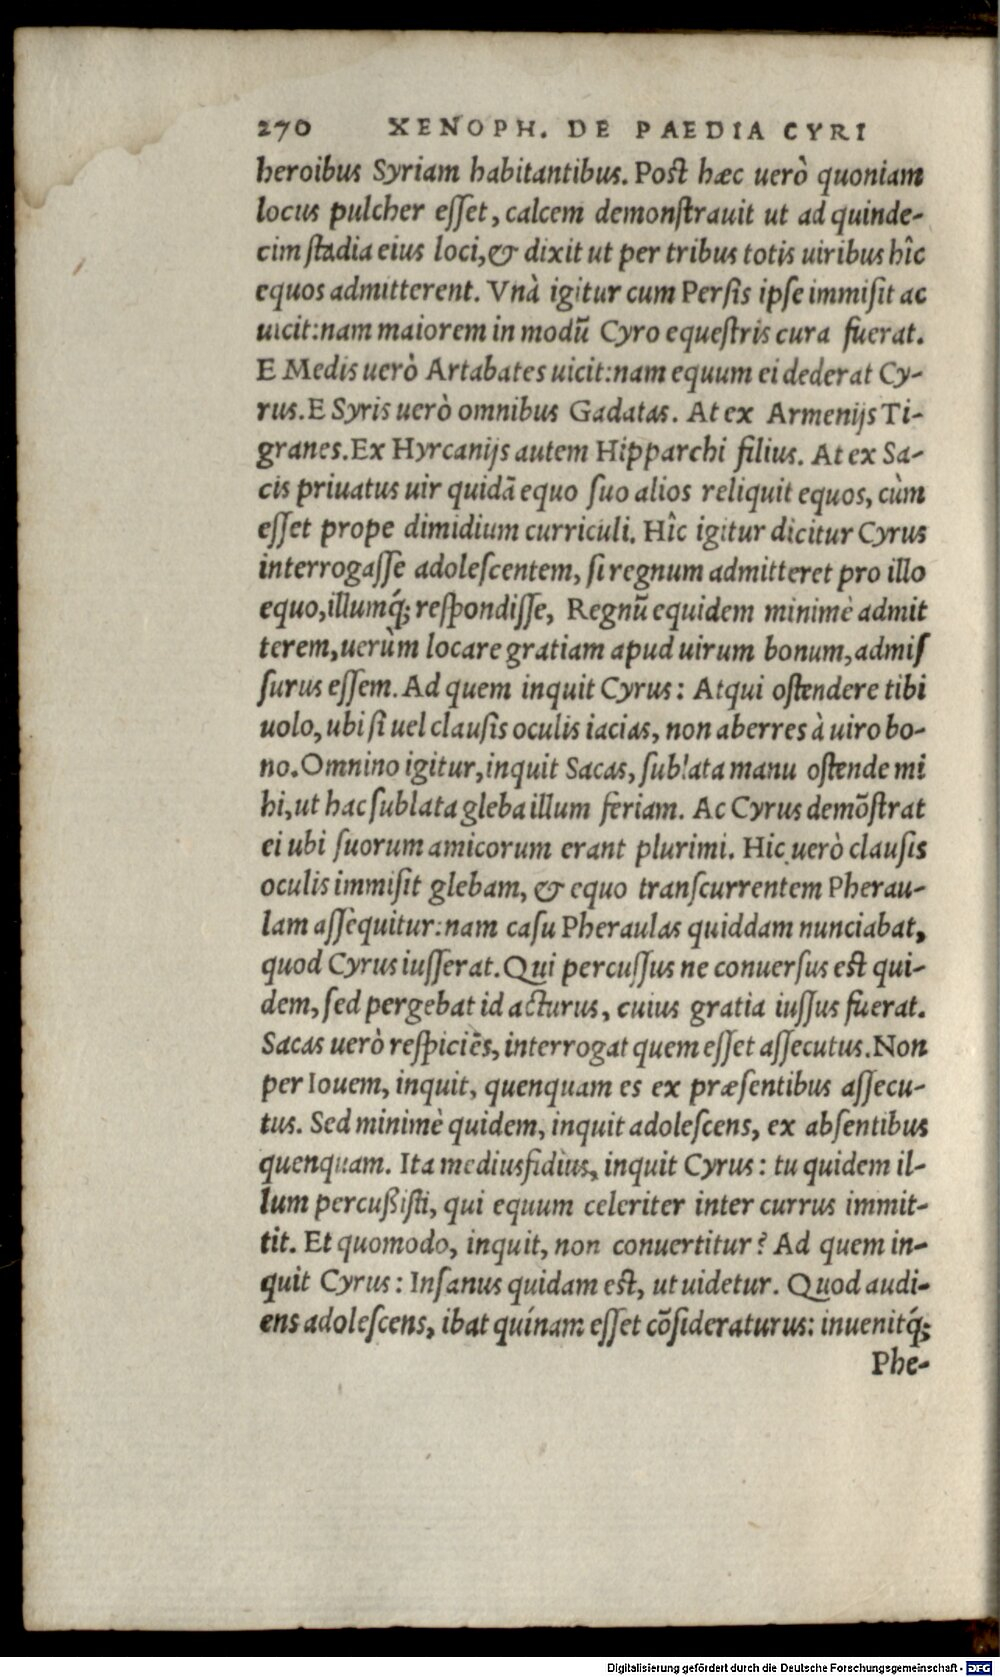 270 XENOPH. DE PAEDIA CYRI
heroibus Syriam habitantibus. Post hæc uerò quoniam
locus pulcher eſſet, calcem demonſtrauit ut ad quinde-
cim ſtadia eius loci, & dixit ut per tribus totis uiribus hîc
equos admitterent. Vnà igitur cum Perſis ipſe immiſit ac
uicit: nam maiorem in modū Cyro equeſtris cura fuerat.
E Medis uerò Artabates uicit: nam equum ei dederat Cy-
rus. E Syris uerò omnibus Gadatas. At ex Armenijs Ti-
granes. Ex Hyrcanijs autem Hipparchi filius. At ex Sa-
cis priuatus uir quidā equo ſuo alios reliquit equos, cùm
eſſet prope dimidium curriculi. Hîc igitur dicitur Cyrus
interrogaſſe adoleſcentem, ſi regnum admitteret pro illo
equo, illumq́; reſpondiſſe, Regnū equidem minimè admit
terem, uerùm locare gratiam apud uirum bonum, admiſ
ſurus eſſem. Ad quem inquit Cyrus: Atqui oſtendere tibi
uolo, ubi ſi uel clauſis oculis iacias, non aberres à uiro bo-
no. Omnino igitur, inquit Sacas, ſublata manu oſtende mi
hi, ut hac ſublata gleba illum feriam. Ac Cyrus demōſtrat
ei ubi ſuorum amicorum erant plurimi. Hic uerò clauſis
oculis immiſit glebam, & equo tranſcurrentem Pherau-
lam aſſequitur: nam caſu Pheraulas quiddam nunciabat,
quod Cyrus iuſſerat. Qui percuſſus ne conuerſus est qui-
dem, ſed pergebat id acturus, cuius gratia iuſſus fuerat.
Sacas uerò reſpiciēs, interrogat quem eſſet aſſecutus. Non
per Iouem, inquit, quenquam es ex præſentibus aſſecu-
tus. Sed minimè quidem, inquit adoleſcens, ex abſentibus
quenquam. Ita mediusfidius, inquit Cyrus: tu quidem il-
lum percußiſti, qui equum celeriter inter currus immit-
tit. Et quomodo, inquit, non conuertitur? Ad quem in-
quit Cyrus: Inſanus quidam est, ut uidetur. Quod audi-
ens adoleſcens, ibat quínam eſſet cōſideraturus: inuenitq́;
Phe-
Digitalisierung gefördert durch die Deutsche Forschungsgemeinschaft - DFG